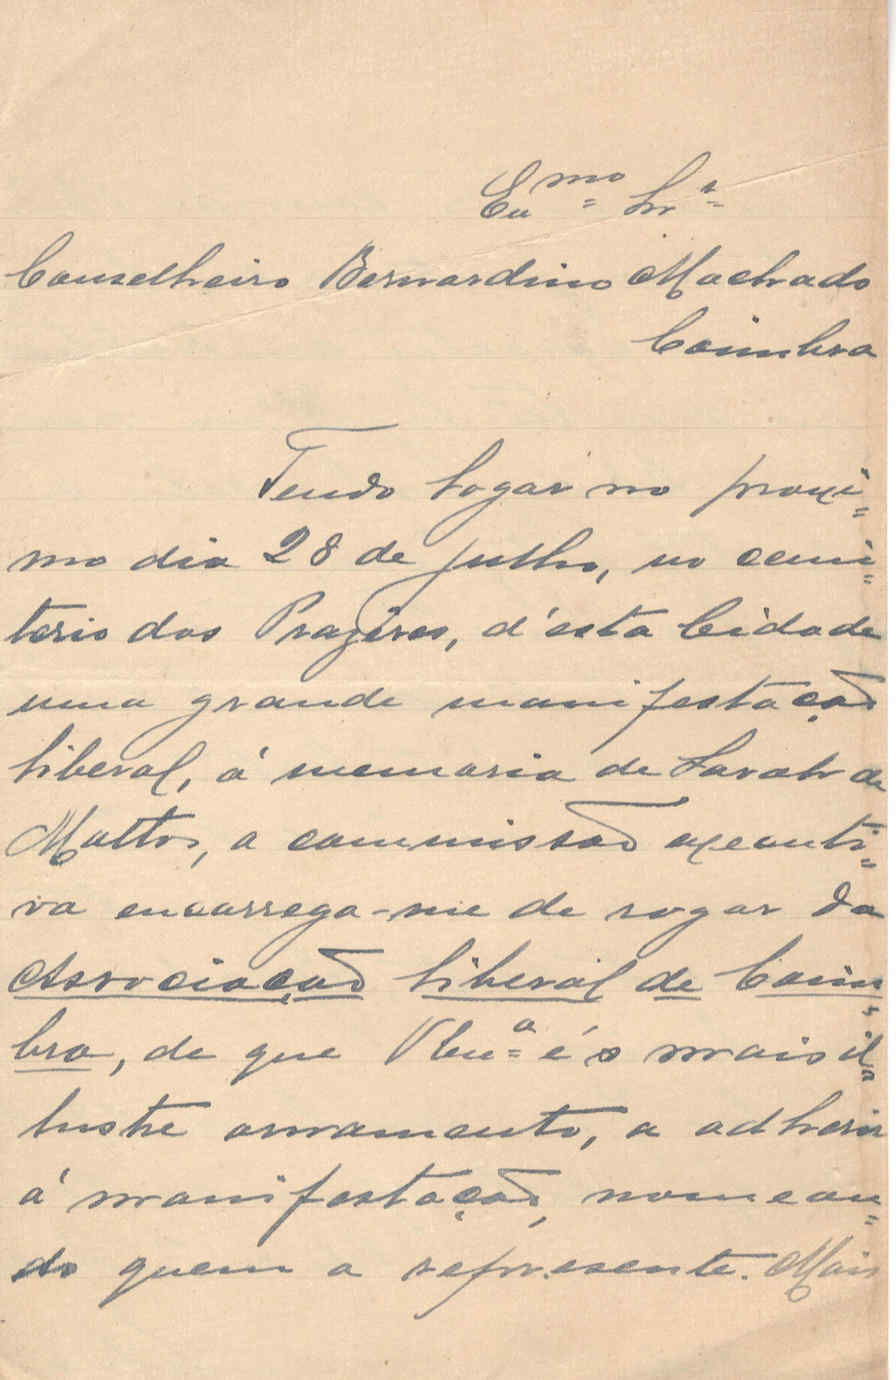 Exmo Snr
Conselheiro Bernardino Machado
Coimbra
Tendo logar no proxi=
mo dia 28 de Julho, no cemi=
terio dos Prazeres, d'esta Cidade
uma grande manifestação
liberal, á memoria de Sarah de
Mattos, a commissão executi=
va encarrega-me de rogar da
Associação Liberal de Coim=
bra, de que V Exa é o mais il=
lustre ornamento, a adherir
á manifestação, nomean=
do quem a represente. Mais